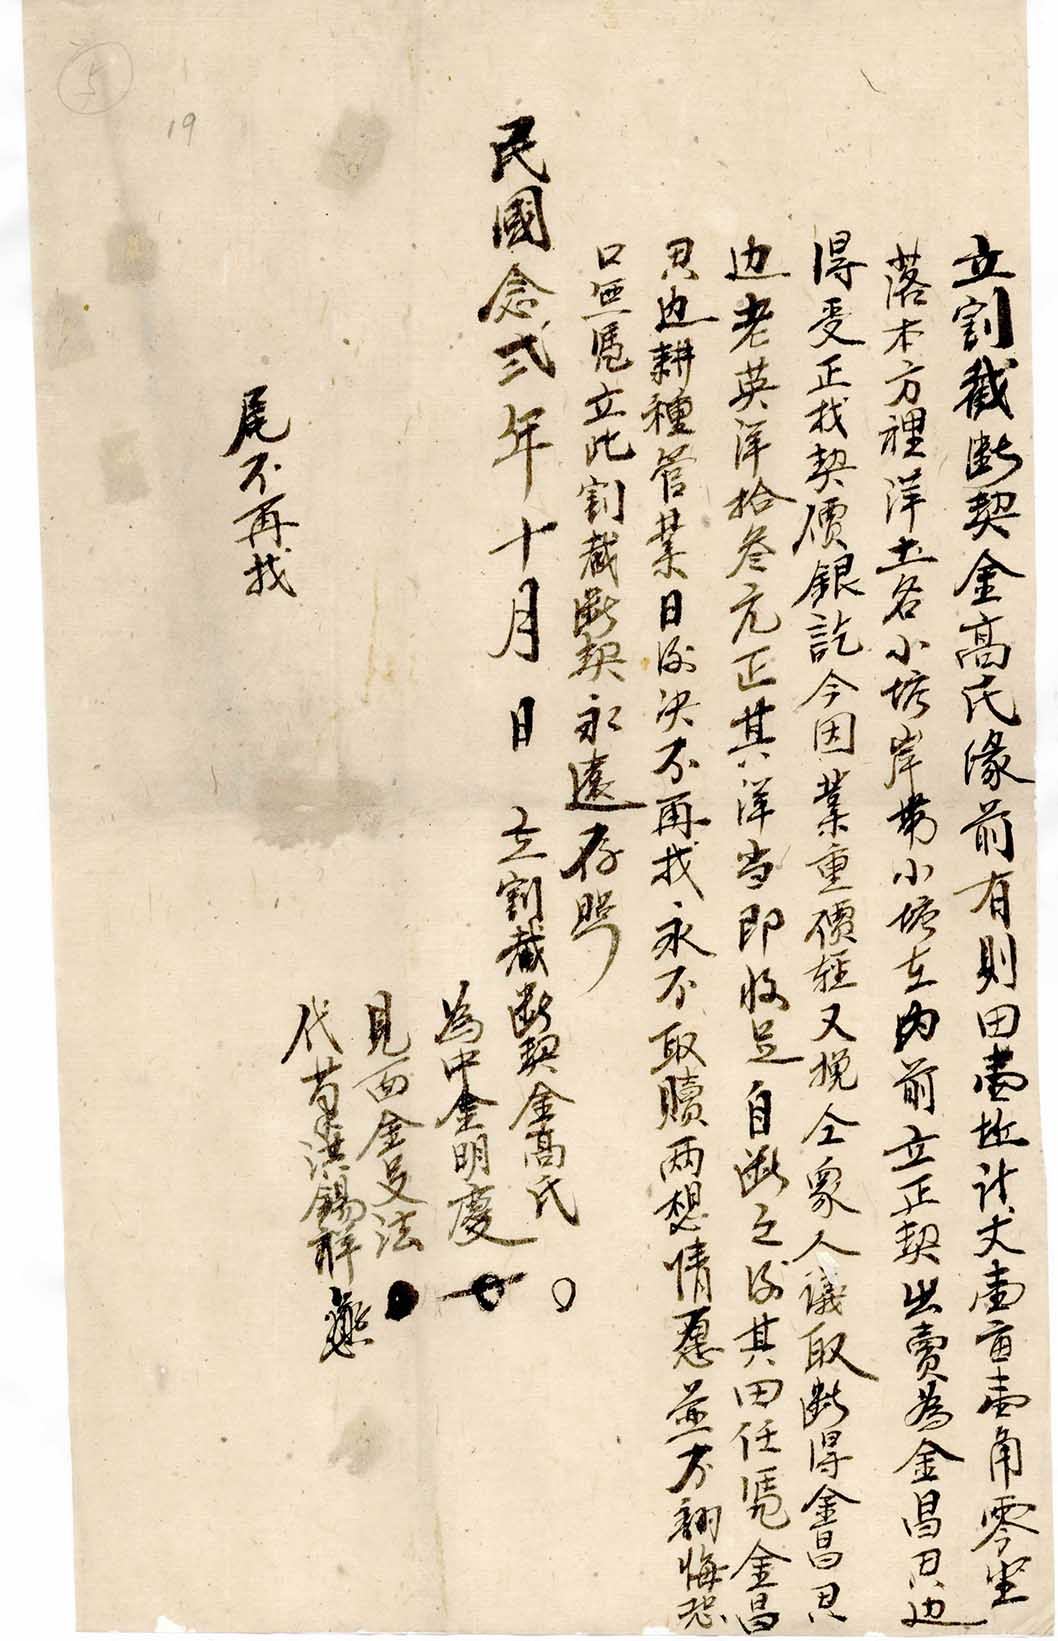 立割截断契金高氏緣前有則田壹坵计丈壹亩壹角零坐
落本方裡洋土名小塘岸帶小塘在內前立正契出賣為金昌思边
得受正找契價銀訖今因業重價輕又挽仝眾人議取断得金昌思
边老英洋拾叁元正其洋当即收足自断之後其田任凭金昌
思边耕種管業日後決不再找永不取贖兩想情愿並不翻悔恐
口無憑立此割截断契永遠存照
民國念弍年十月 日 立割截断契金高氏
為中金明慶
見面金旻法
代筆洪錫祥
尾不再找
5
19